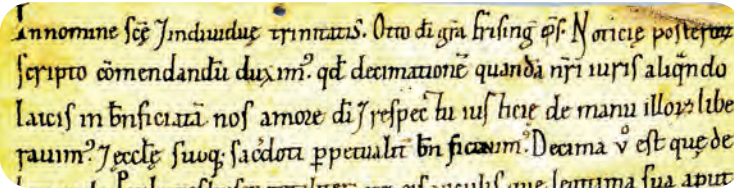 Innomine scę ⁊ indiuiduę trinitatis. Otto di gr̄a frising ep̄s. Noticię posteroꝝ
scripto cōmendandū duxim᾽. qd̄ decimationē quandā nr̄i iuris aliqn̄do
laicis in bn̄ficiatā nos amore dī ⁊ respectu iusticię de manu illoꝝ libe
rauim᾽. ⁊ ęcclę suoq; sac̄doti ꝑpetualit̄ bn̄ficiauim᾽. Decima v̊ est quę de